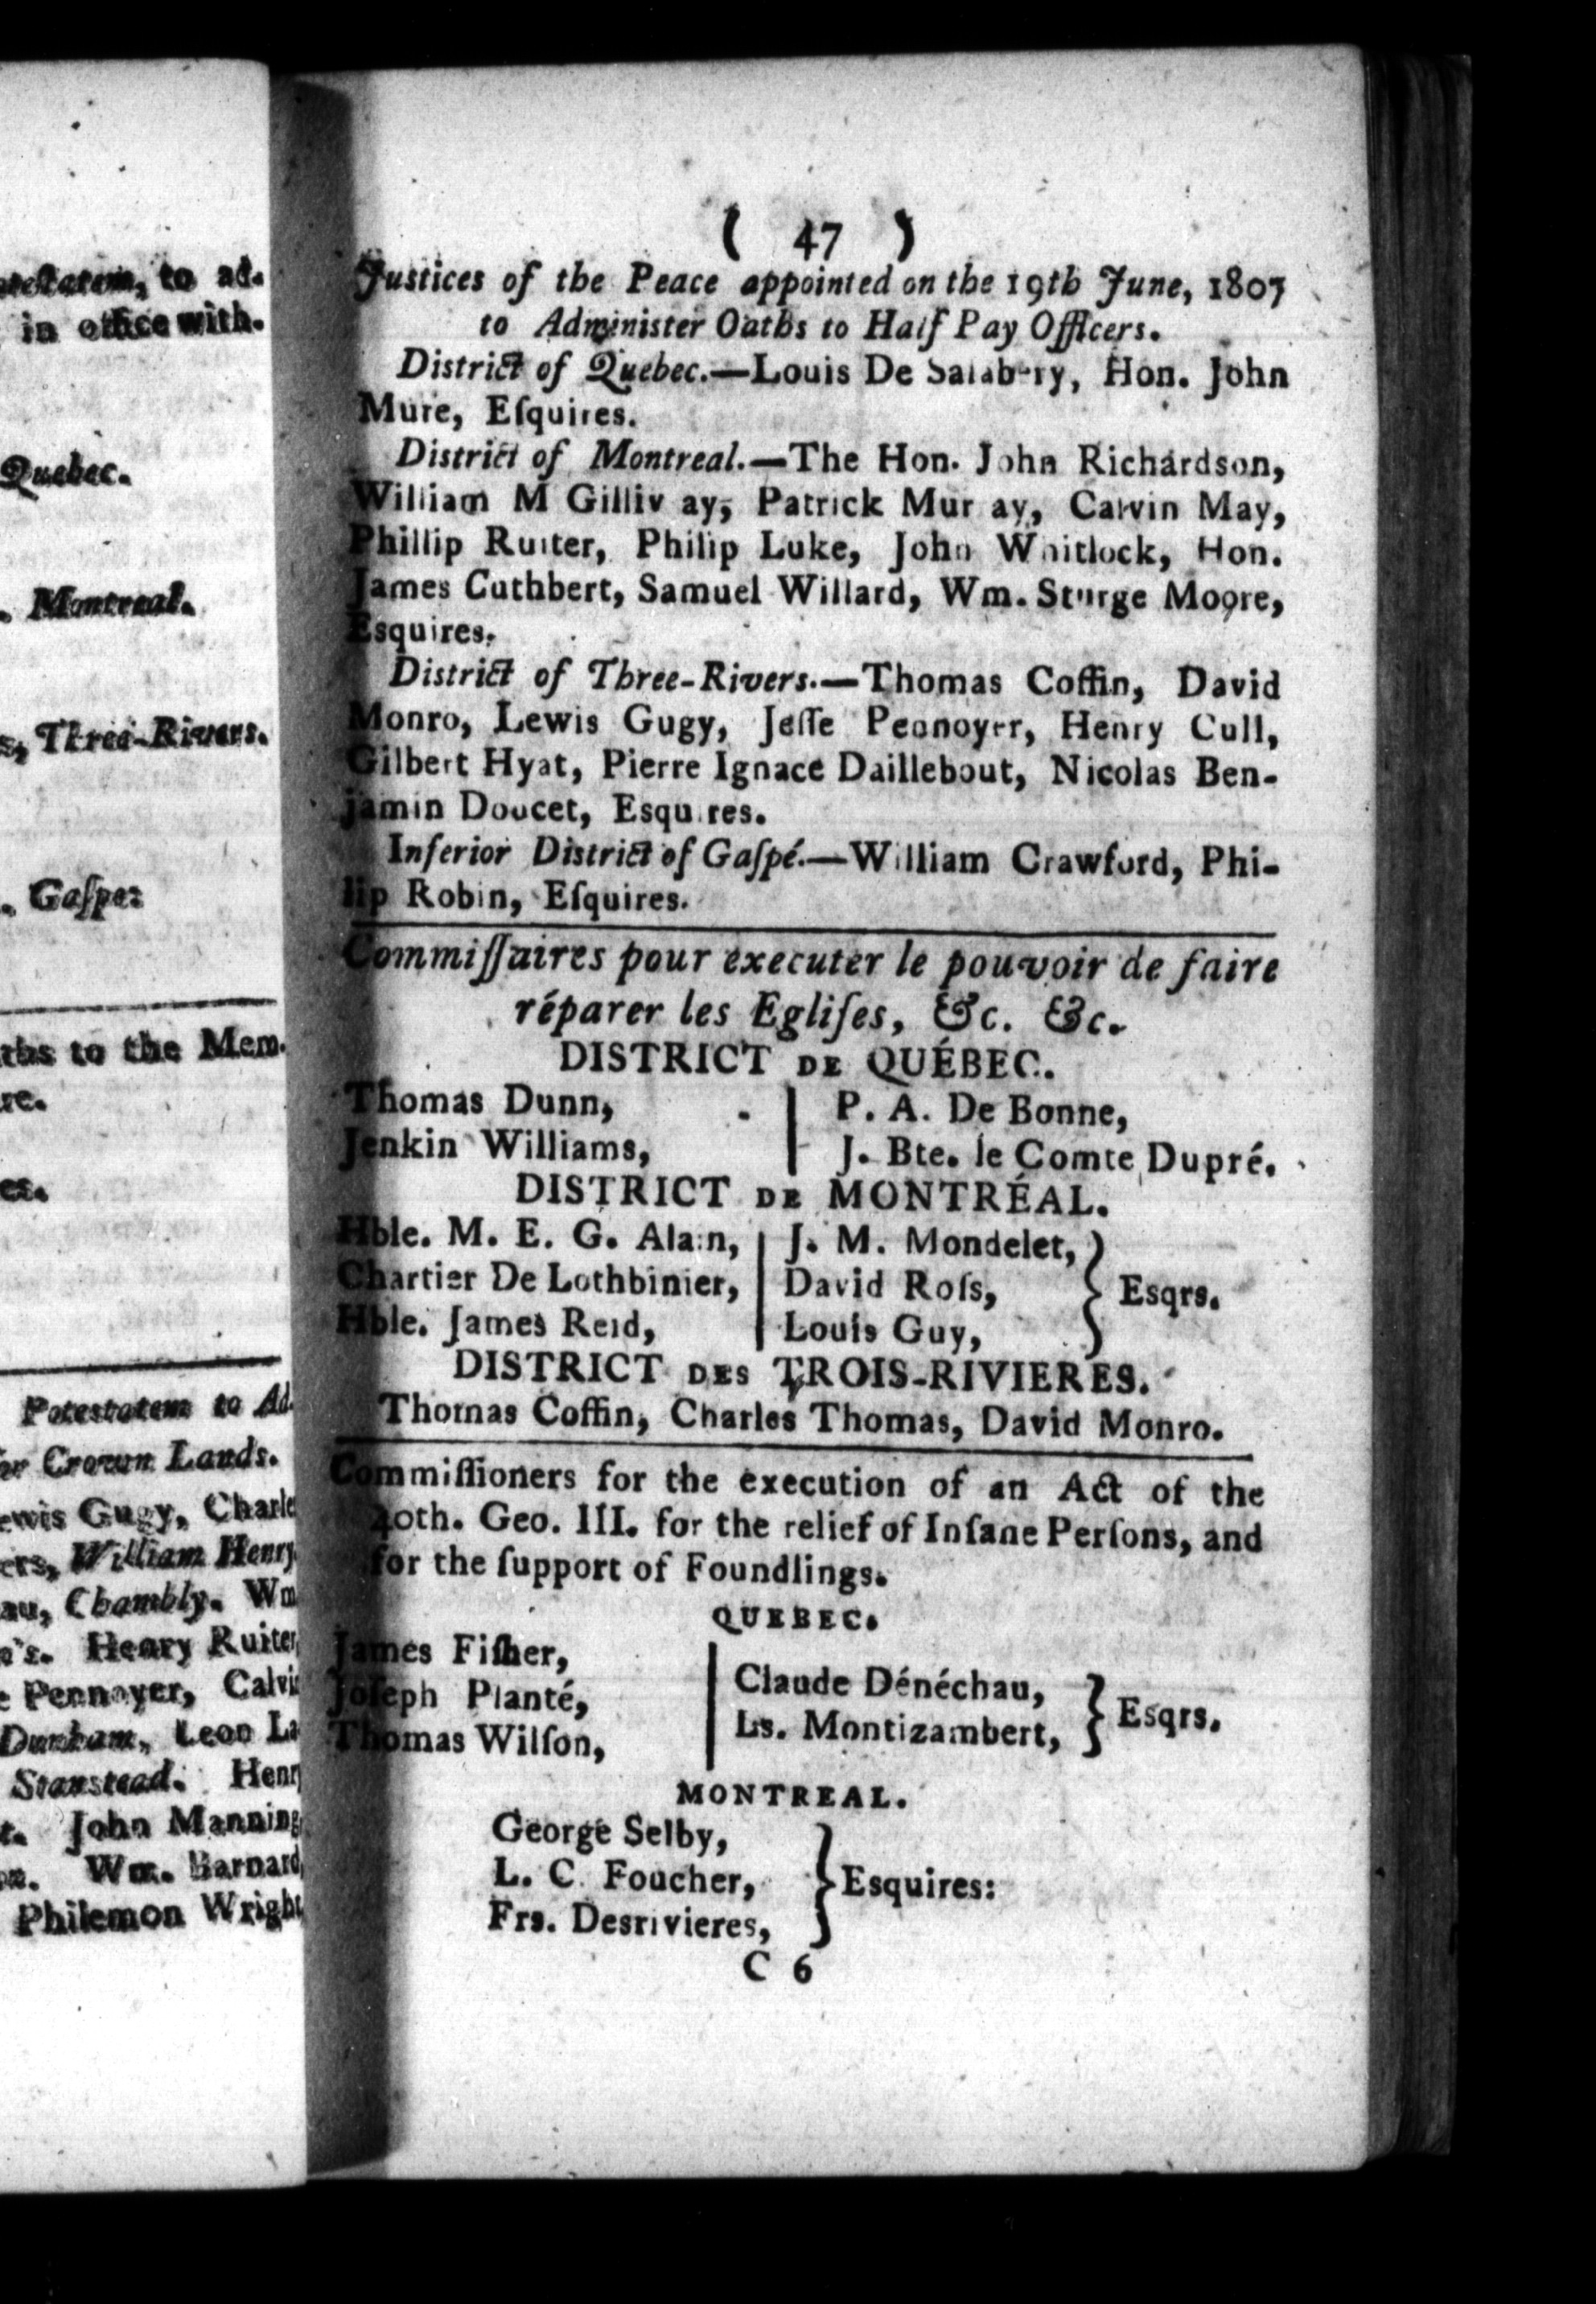 to ad-
in office with-
Quebec.
Montreal.
Three-Rivers.
Gaſpe:
to the Mem-
Potestatem to Ad-
Crown Lands.
Gugy, Charle
William Henry
Chambly. Wm
Henry Ruiter,
Pennoyer, Calvi
Dunham, Leon La
Stanstead. Henr
John Manning
Wm. Barnard
Philemon Wright
( 47 )
Justices of the Peace appointed on the 19th June, 1807
to Administer Oaths to Half Pay Officers.
District of Quebec.—Louis De Salabery, Hon. John
Mure, Eſquires.
District of Montreal.—The Hon. John Richardson,
William M Gilliv ay, Patrick Mur ay, Calvin May,
Phillip Ruiter, Philip Luke, John Whitlock, Hon.
James Cuthbert, Samuel Willard, Wm. Sturge Moore,
Esquires.
District of Three-Rivers.—Thomas Coffin, David
Monro, Lewis Gugy, Jeſſe Pennoyer, Henry Cull,
Gilbert Hyat, Pierre Ignace Daillebout, Nicolas Ben-
jamin Doucet, Esquires.
Inferior District of Gaſpé.—William Crawford, Phi-
lip Robin, Eſquires.
Commiſſaires pour executer le pouvoir de faire
réparer les Egliſes, &c. &c.
DISTRICT DE QUÉBEC.
Thomas Dunn, | P. A. De Bonne,
Jenkin Williams, | J. Bte. le Comte Dupré.
DISTRICT DE MONTRÉAL.
Hble. M. E. G. Alain, | J. M. Mondelet,
Chartier De Lothbinier, | David Roſs, } Esqrs.
Hble. James Reid, | Louis Guy,
DISTRICT DES TROIS-RIVIERES.
Thomas Coffin, Charles Thomas, David Monro.
Commiſſioners for the execution of an Act of the
40th. Geo. III. for the relief of Inſane Perſons, and
for the ſupport of Foundlings.
QUEBEC.
James Fiſher,
Joſeph Planté, | Claude Dénéchau, } Esqrs.
Thomas Wilſon, | Ls. Montizambert,
MONTREAL.
George Selby,
L. C. Foucher, } Esquires:
Frs. Desrivieres,
C 6